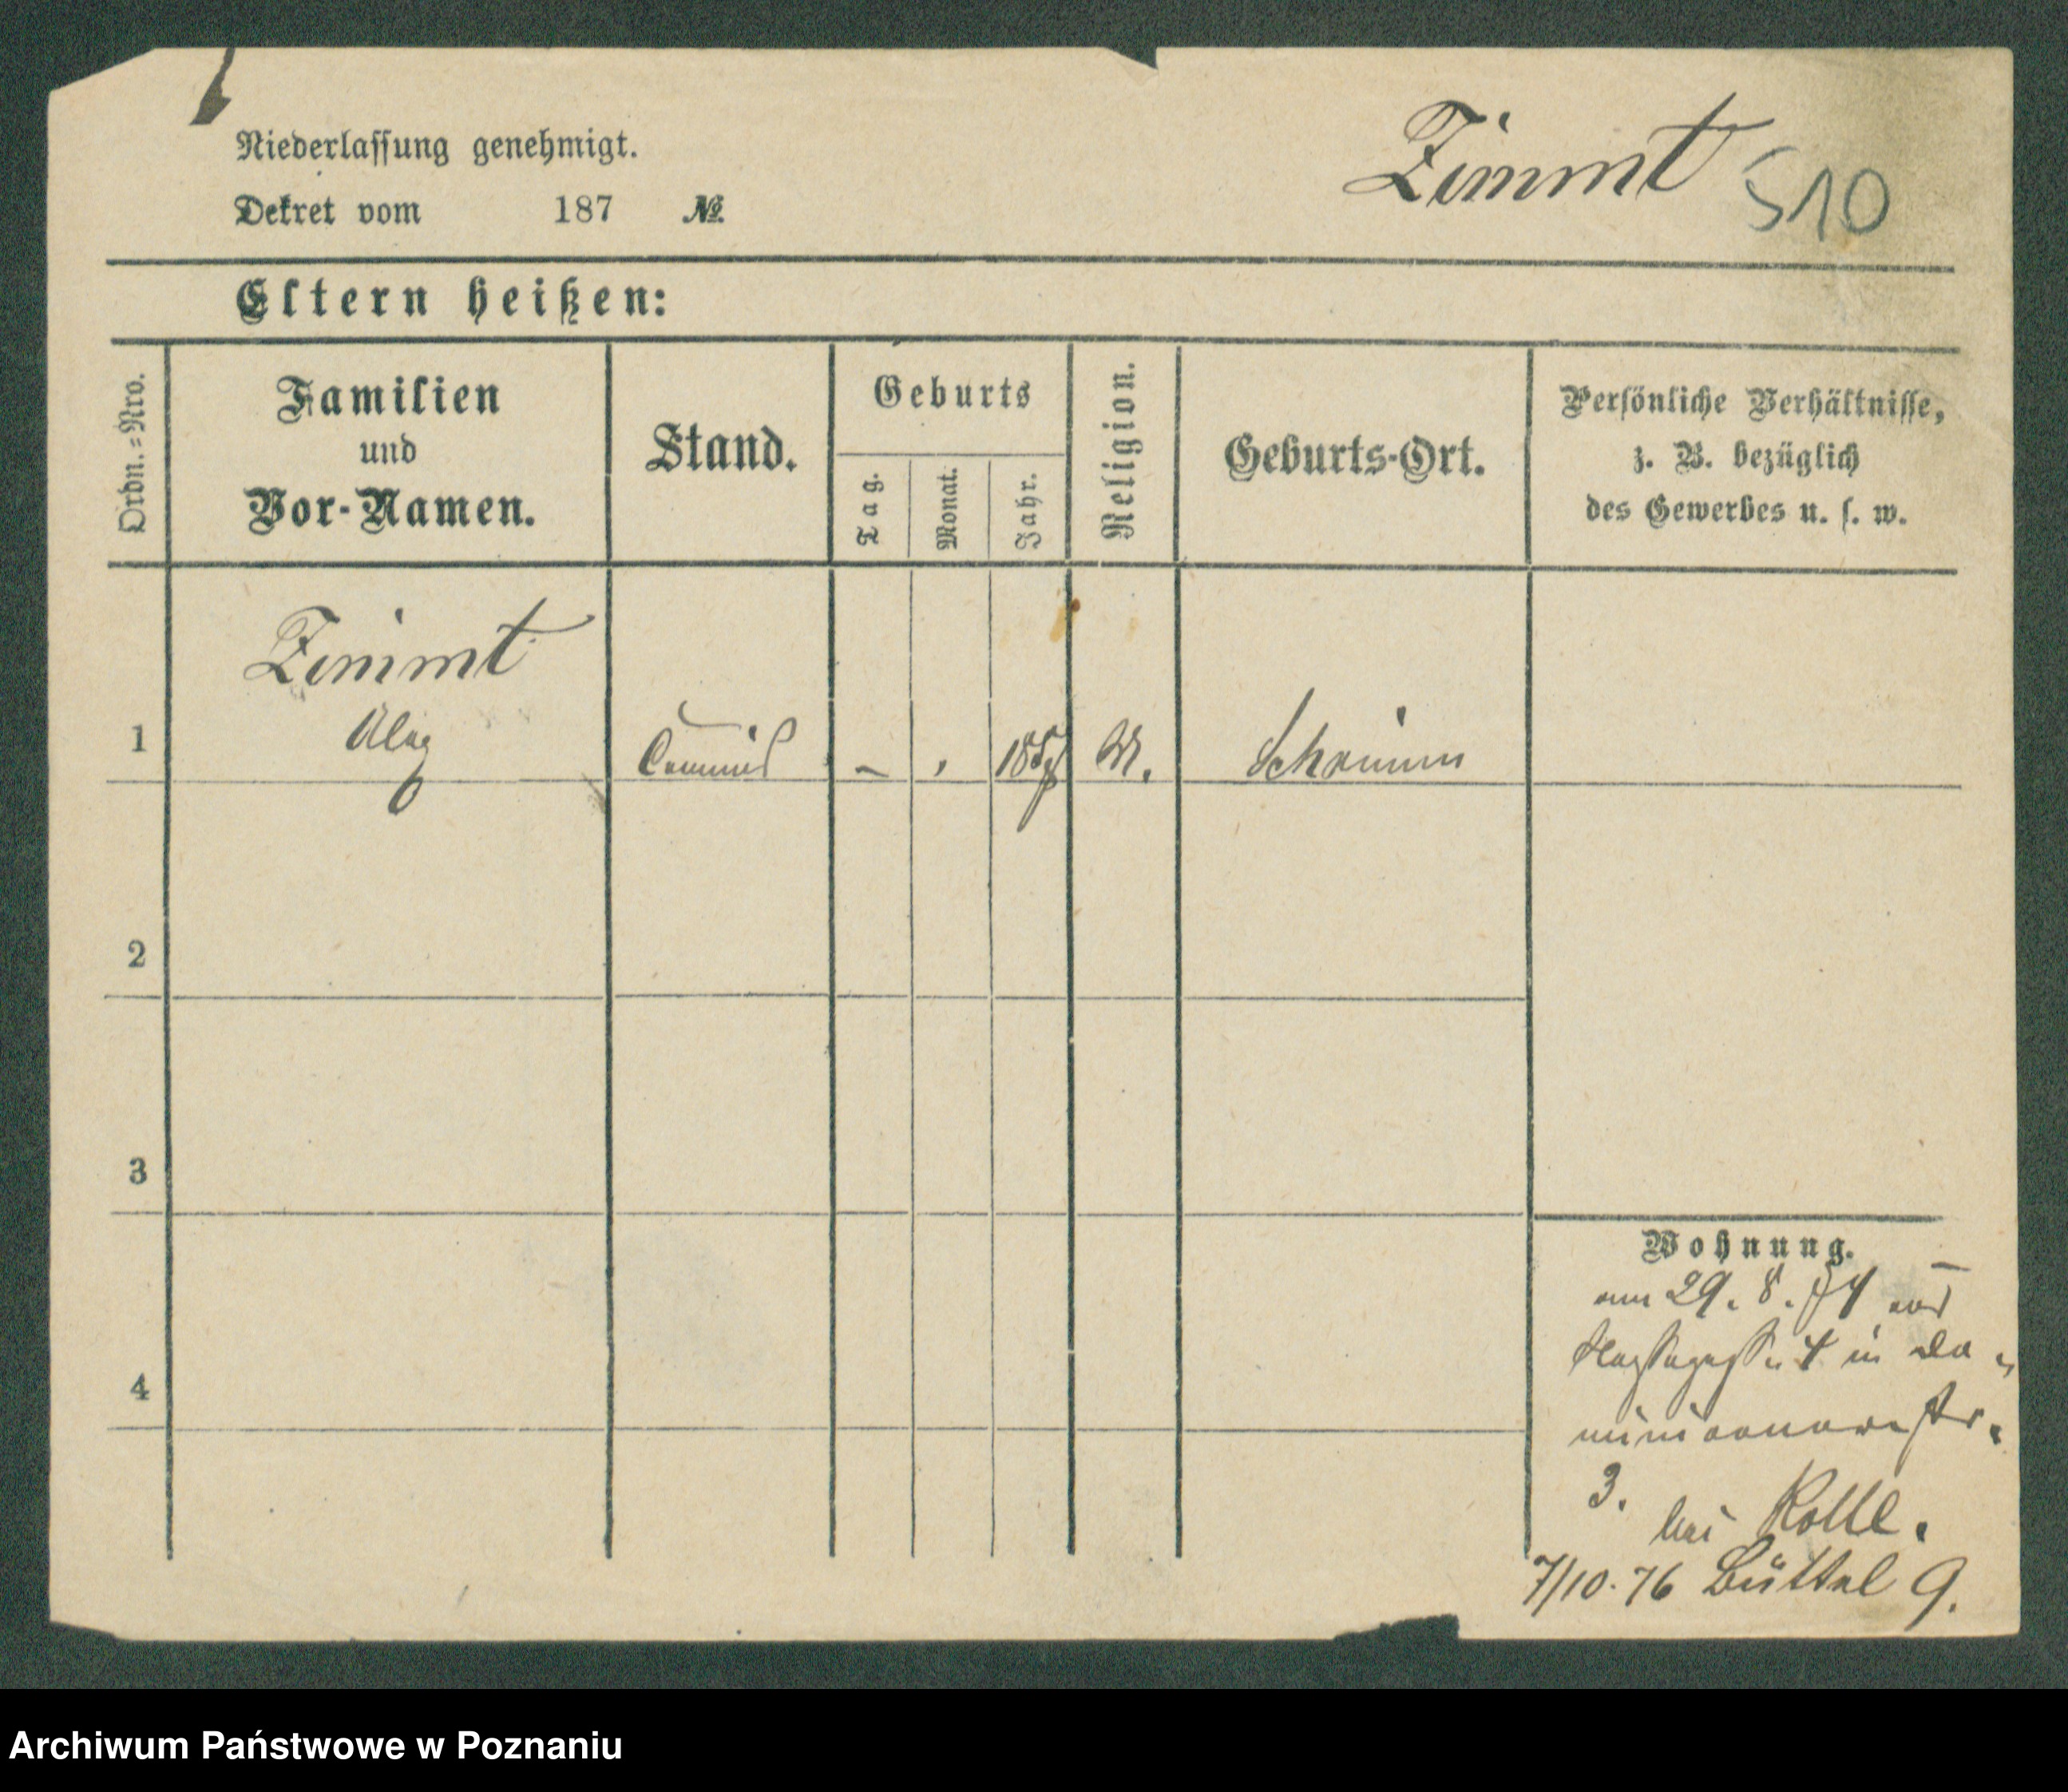 Niederlassung genehmigt.
Dekret vom 187 №
Zimmt 510
Eltern heißen:
Ordn.=Nro.
Familien
und
Vor-Namen.
Stand.
Geburts
Tag.
Monat.
Jahr.
Religion.
Geburts-Ort.
Persönliche Verhältnisse,
z. B. bezüglich
des Gewerbes u. s. w.
Zimmt
1 Commis – Schrimm
2
3
4
Wohnung.
am 29. 8. 74 aus
4 in Do-
minicanerstr.
3.
bei
7/10. 76 Büttel 9.
Archiwum Państwowe w Poznaniu